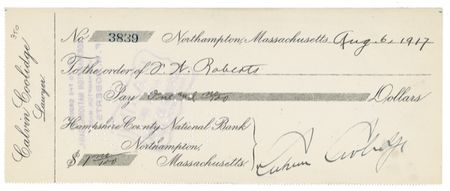 Calvin Coolidge
Lawyer
No 3839 Northampton, Massachusetts, Aug. 6, 1917
To the order of S. A. Roberts
Pay One and Dollars
Hampshire County National Bank
Northampton,
$ 1 Massachusetts
Calvin Coolidge